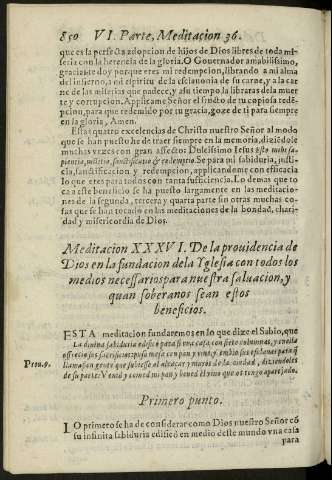 850 VI. Parte, Meditacion 36.
que es la perfecta adopcion de hijos de Dios libres de toda mi-
seria con la herencia de la gloria. O Gouernador amabilissimo,
gracias te doy porque eres mi redempcion, librando a mi alma
del infierno, a mi espiritu de la esclauonia de su carne, y a la car
ne de las miserias que padece, y a su tiempo la libraras de la muer
te y corrupcion. Aplicame Señor el fructo de tu copiosa redē-
pcion, para que redemido por tu gracia, goze de ti para siempre
en la gloria, Amen.
Estas quatro excelencias de Christo nuestro Señor al modo
que se han puesto he de traer siempre en la memoria, diziēdole
muchas vezes con gran afecto: Dulcissimo Iesus
piencia, iusticia, sanctificatio & redemptio. Se para mi sabiduria, justi-
cia, sanctificacion, y redempcion, applicandome con efficacia
lo que eres para todos con tanta suficiencia. Lo demas que to
ca a este beneficio se ha puesto largamente en las meditacio-
nes de la segunda, tercera, y quarta parte sin otras muchas co-
sas que se han tocado en las meditaciones de la bondad, chari-
dad y misericordia de Dios.
Meditacion XXXVI. De la prouidencia de
Dios en la fundacion de la Yglesia con todos los
medios necessarios para nuestra saluacion, y
quan soberanos sean estos
beneficios.
ESTA meditacion fundaremos en lo que dize el Sabio, que
La diuina sabiduria edificò para si vna casa con siete columnas, y en ella
ofrecio sus sacrificios: puso mesa con pan y vino, y embio sus esclauas para q̃
Prou. 9. llamassen gente que subiesse al alcaçar y muros de la ciudad, diziendoles
de su parte: Venid y comed mi pan y beued el vino que os tengo aparejado.
Primero punto.
1 LO primero se ha de considerar como Dios nuestro Señor cō
su infinita sabiduria edificò en medio deste mundo vna casa
para